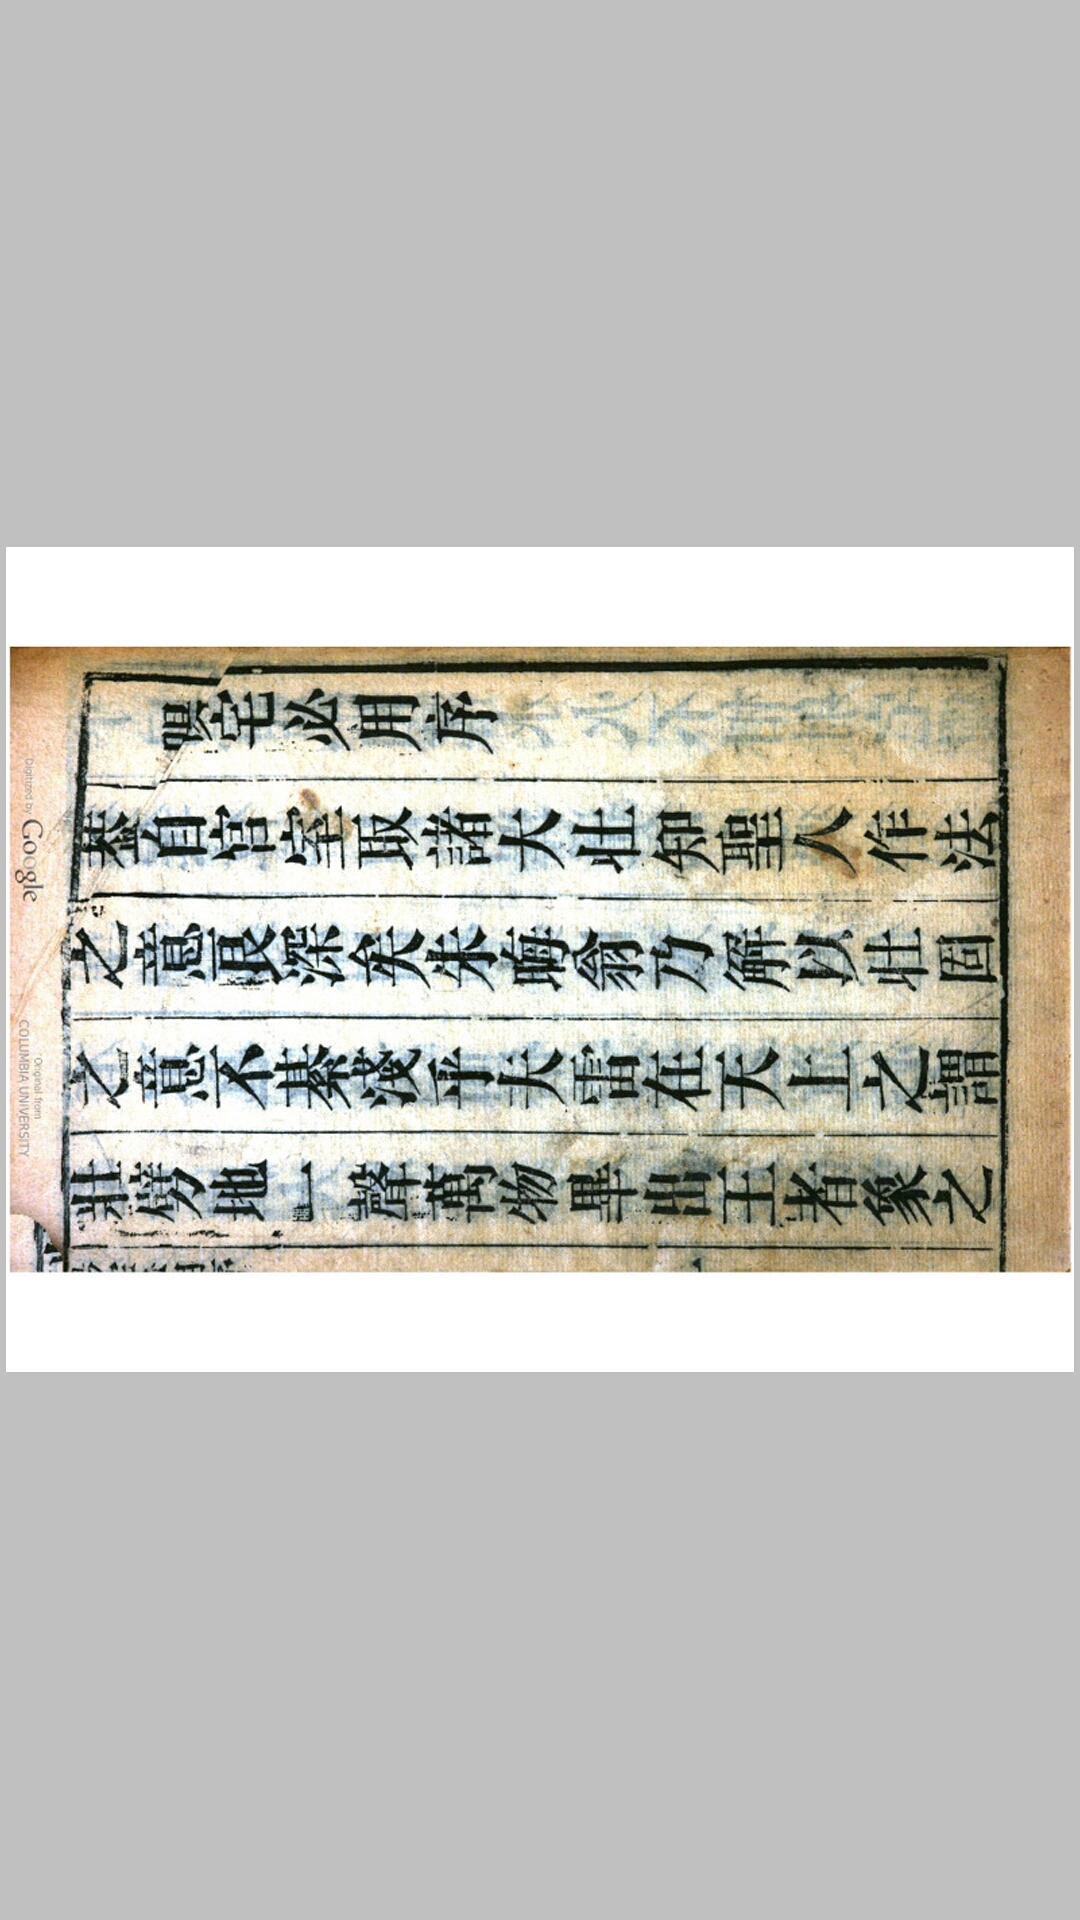 陽宅必用序
蓋自宮室取諸大壯知聖人作法
之意良深矣朱晦翁乃解以壯固
之意不綦淺乎夫雷在天上之謂
壯劈地一聲萬物畢出王者象之
Digitized by Google
Original from
COLUMBIA UNIVERSITY